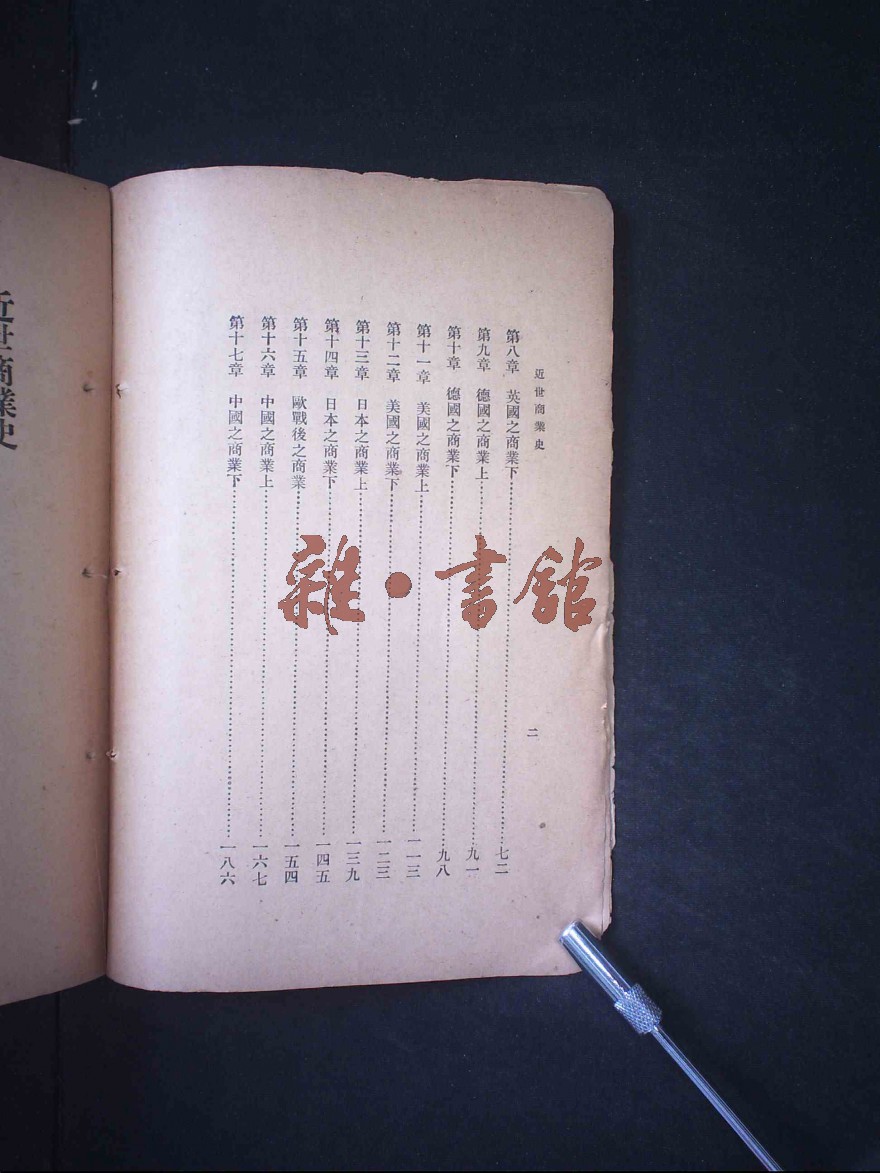 近世商業史
二
第八章 英國之商業下………七二
第九章 德國之商業上………九一
第十章 德國之商業下………九八
第十一章 美國之商業上………一一三
第十二章 美國之商業下………一二三
第十三章 日本之商業上………一三九
第十四章 日本之商業下………一四五
第十五章 歐戰後之商業………一五四
第十六章 中國之商業上………一六七
第十七章 中國之商業下………一八六
近世商業史
雜·書館